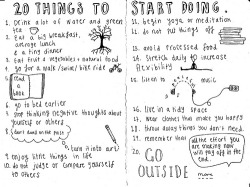 20 THINGS TO START DOING.
1. DRINK A LOT OF WATER and green tea
2. Eat a big breakfast,
average lunch
& a tiny dinner
3. Eat fruit & vegetables + natural food
4. go for a walk / swim / bike ride
5. read a book
6. go to bed earlier
7. stop thinking negative thoughts about
yourself or others
8. don't dwell on the past
turn it into art!
9. enjoy little things in life
10. do not judge or compare yourself
to others
11. begin yoga or meditation
12. do not put things off
13. avoid processed food
14. Stretch daily to increase
flexibility
15. Listen to music
16. live in a tidy space
17. wear clothes that make you happy
18. throw away things you don't need
19. remember that
all the effort you
are making now
will pay off in the
end.
20. GO
OUTSIDE more